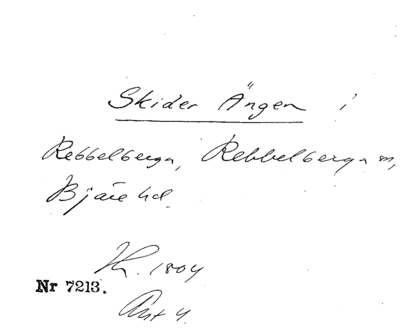 Skider Ängen i
Rebbelberga, Rebbelberga sn,
Bjäre hd.
Kh. 1804
Nr 7213.
Akt 4